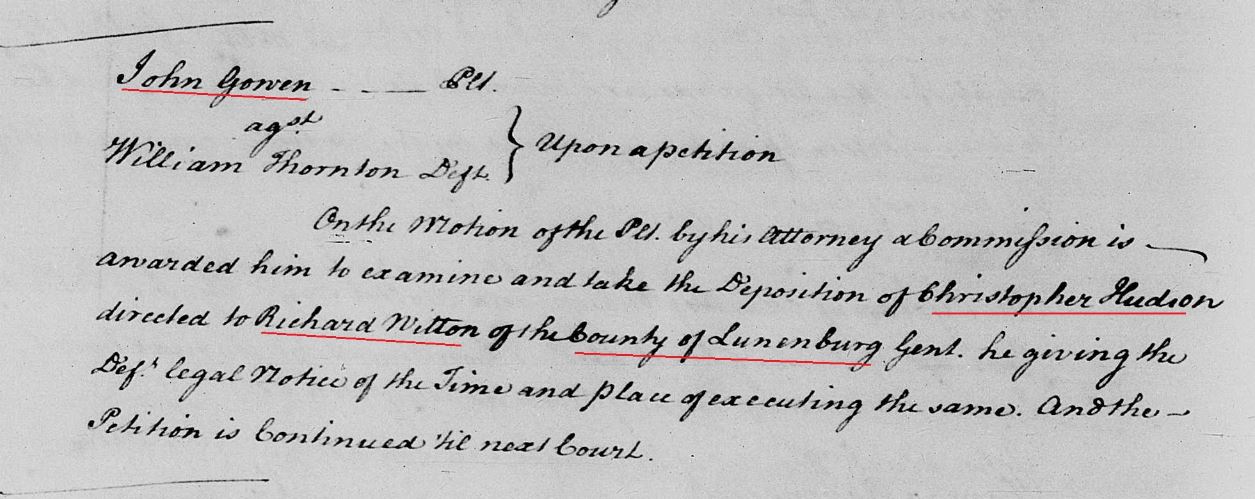 John Gowen - - — Plt.
agst
William Thornton Deft. } Upon a petition
On the Motion of the Plt. by his Attorney a Commission is —
awarded him to examine and take the Deposition of Christopher Hudson
directed to Richard Witton of the County of Lunenburg Gent. he giving the
Deft. legal Notice of the Time and place of executing the same. And the —
Petition is Continued 'til next Court.